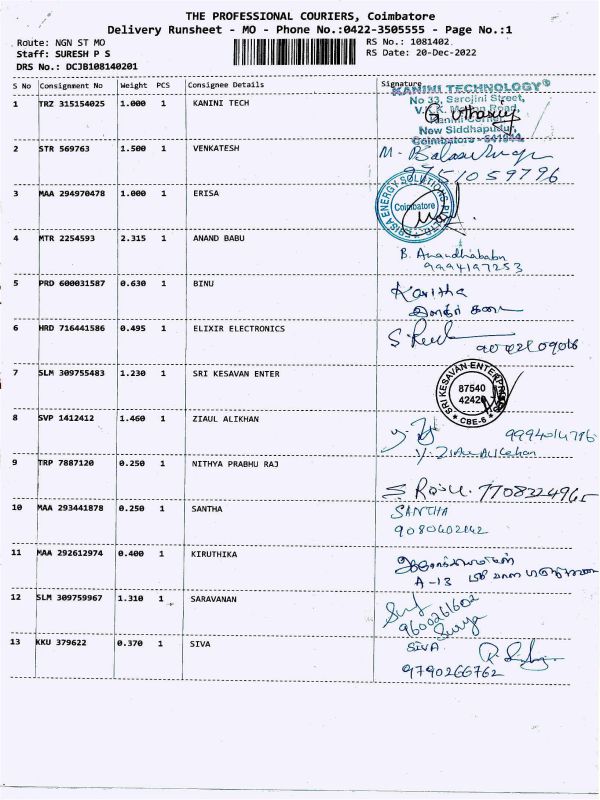 THE PROFESSIONAL COURIERS, Coimbatore
Delivery Runsheet - MO - Phone No.:0422-3505555 - Page No.:1
Route: NGN ST MO RS No.: 1081402
Staff: SURESH P S RS Date: 20-Dec-2022
DRS No.: DCJB108140201
S No Consignment No Weight PCS Consignee Details Signature
1 TRZ 315154025 1.000 1 KANINI TECH
KANINI TECHNOLOGY®
No 33, Sarojini Street,
Road,
New Siddhapudur,
Coimbatore - 641044.
2 STR 569763 1.500 1 VENKATESH
9751059796
3 MAA 294970478 1.000 1 ERISA
ERISA ENERGY SOLUTIONS P LTD
Coimbatore
4 MTR 2254593 2.315 1 ANAND BABU
B. Anandhababu
9994197253
5 PRD 600031587 0.630 1 BINU
Kavitha
6 HRD 716441586 0.495 1 ELIXIR ELECTRONICS
7 SLM 309755483 1.230 1 SRI KESAVAN ENTER
SRI KESAVAN ENTERPRISES
87540
42420
* CBE-6 *
8 SVP 1412412 1.460 1 ZIAUL ALIKHAN
9994014796
9 TRP 7887120 0.250 1 NITHYA PRABHU RAJ
7708324965
10 MAA 293441878 0.250 1 SANTHA
SANTHA
11 MAA 292612974 0.400 1 KIRUTHIKA
A-13
12 SLM 309759967 1.310 1 SARAVANAN
9600261602
Surya
13 KKU 379622 0.370 1 SIVA
SIVA
9790266762